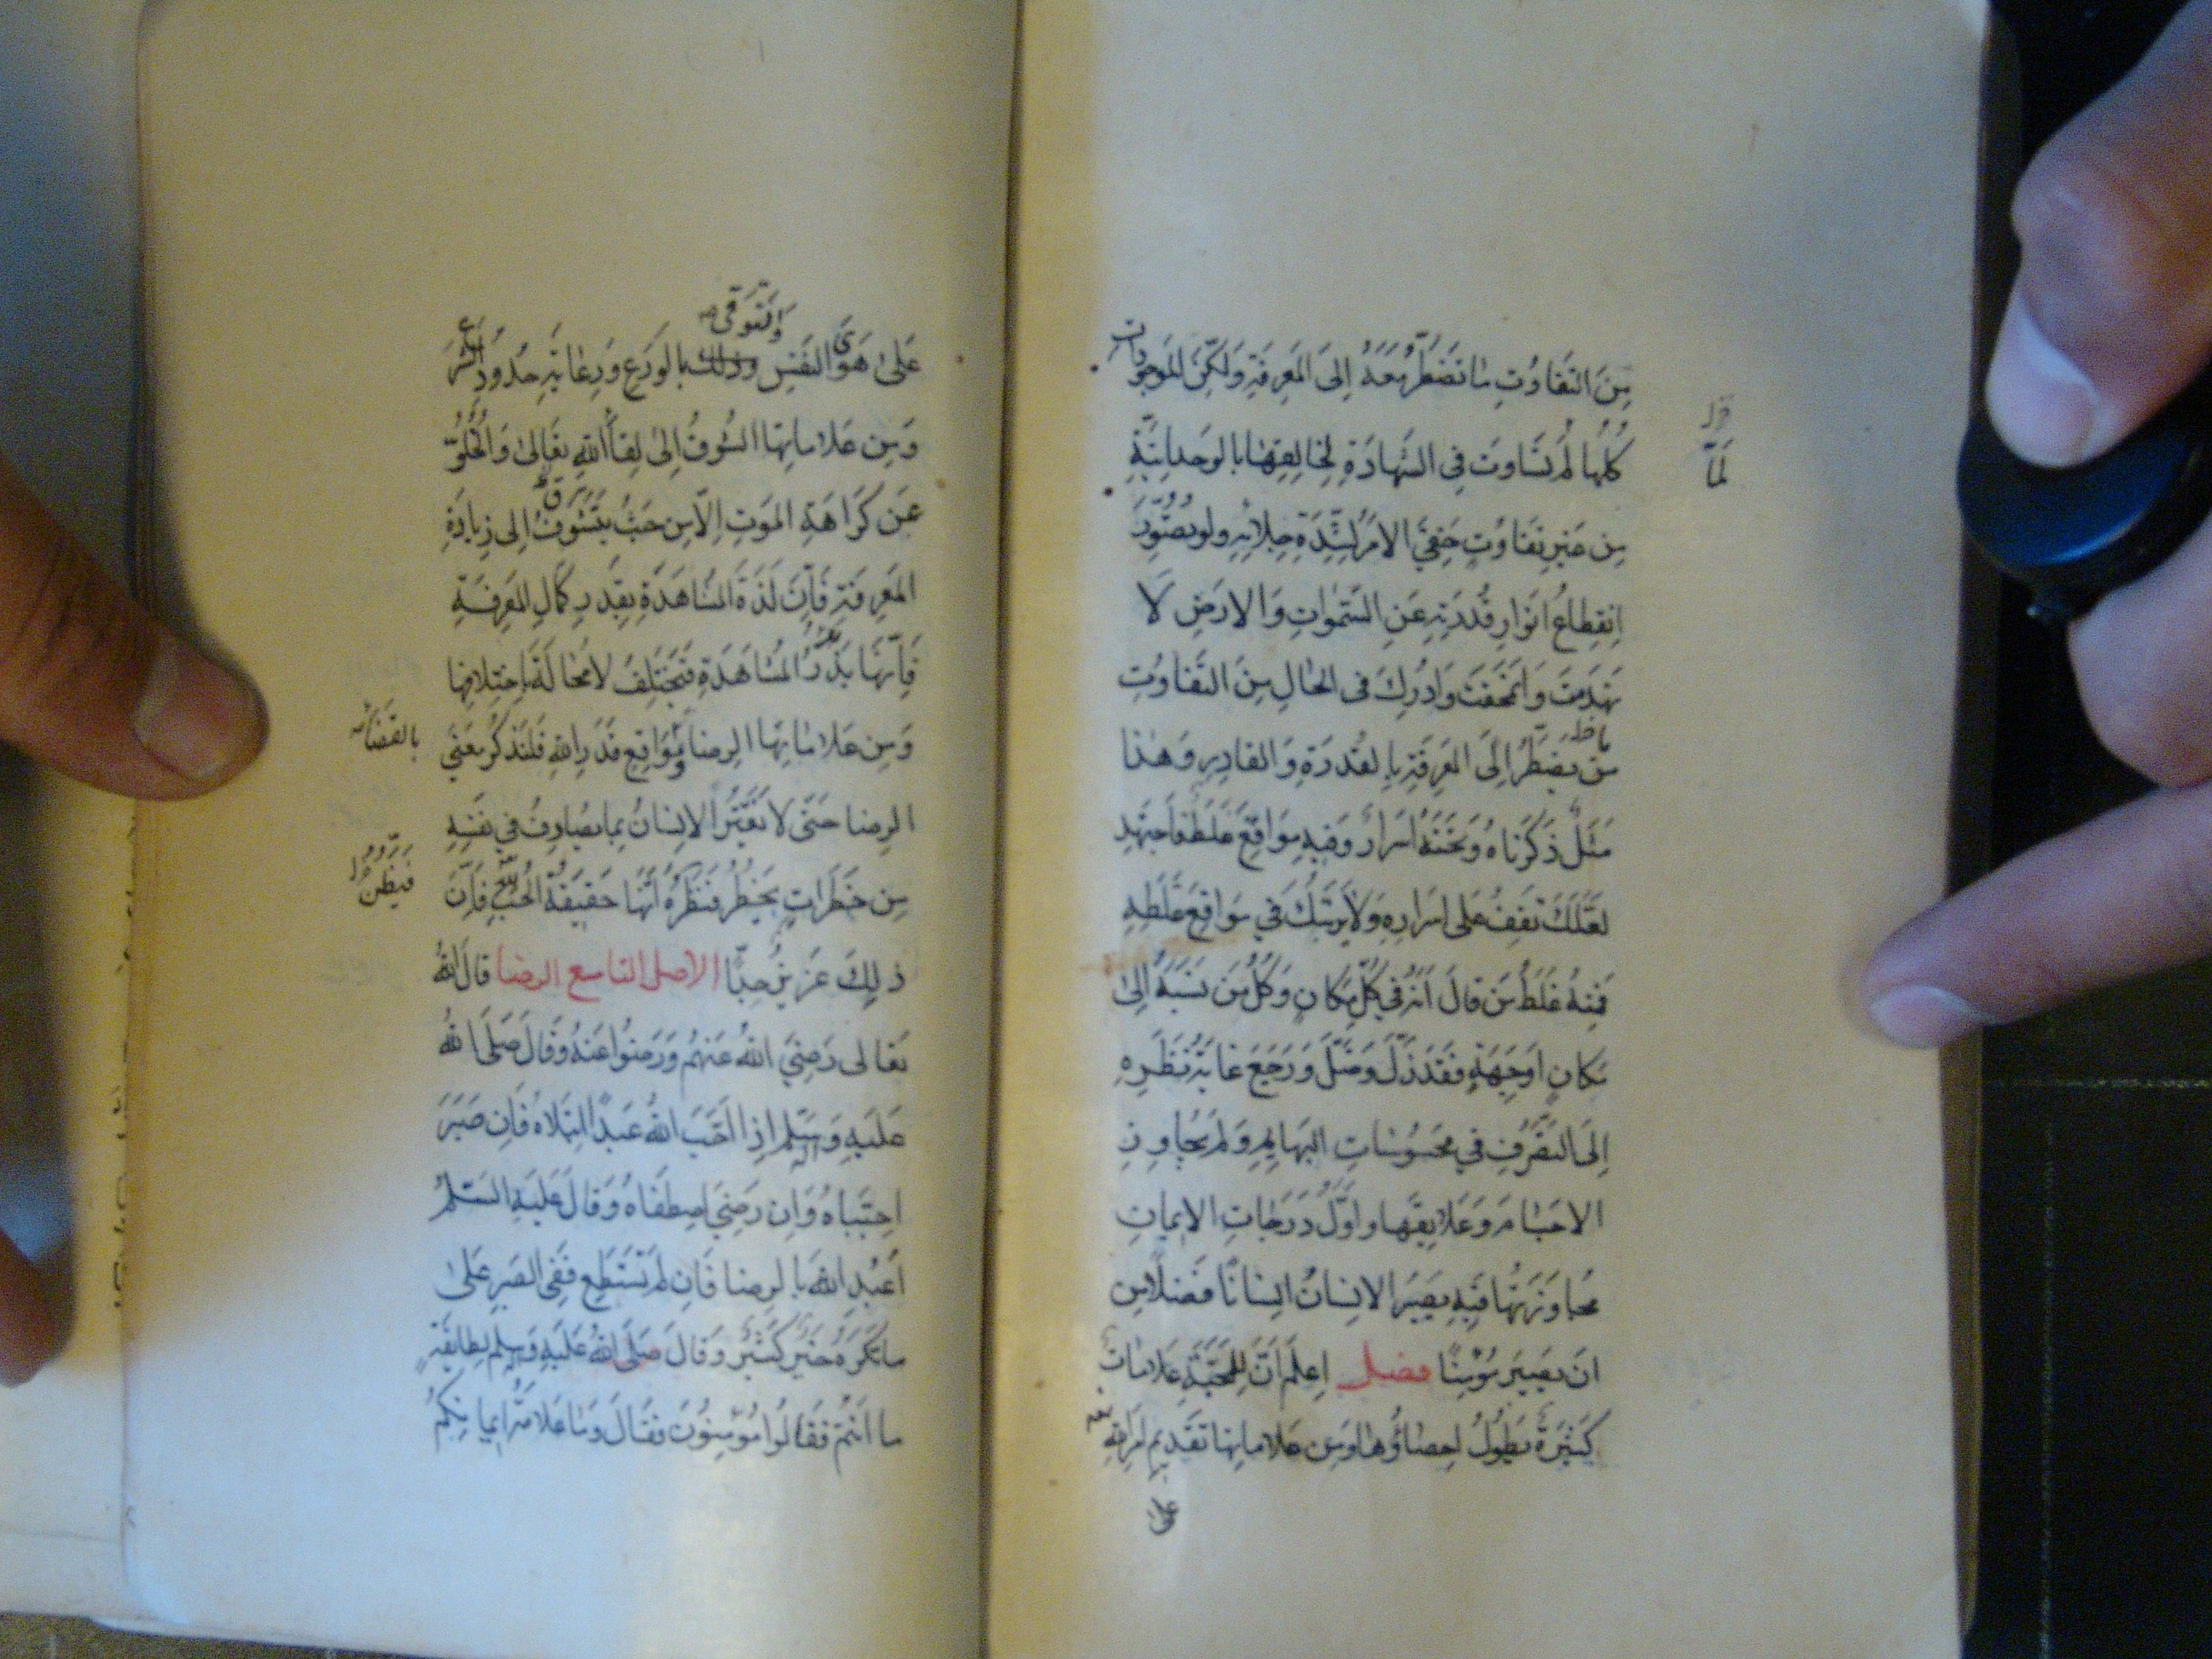 مِنَ التَفَاوُتِ مَا تَضْطَرُّ مَعَهُ اِلَى المَعرِفَةِ وَلَكِنَّ المَوجُودَاتِ
كُلُّهَا لَمَّا تَسَاوَت فِى الشَهَادَةِ لِخَالِقِهَا بِالوَحدَانِيَّةِ
لَمَّا
مِن غَيرِ تَفَاوُتٍ خَفِىَ الاَمرُ لِشِدَّةِ جِلَائِهِ وَلَو تُصُوِّرَ
اِنقِطَاعُ اَنوَارِ قُدرَتِهِ عَنِ السَّمَوَاتِ وَالاَرضِ لَا
نهَدَمَت وَانمَحَقَت وَادُرِكَ فى الحَالِ مِنَ التَفَاوُتِ
مَن يَضطَرُّ اِلَى المَعرِفَةِ بِالقُدرَةِ وَالقَادِرِ وَهَذَا
مَثَلٌ ذَكَرنَاهُ وَتَحتَهُ اَسرَارٌ وَفِيهِ مَوَاقِعُ غَلَطٍ فَاجتَهِد
لَعَلَّكَ تَقِفُ عَلى اَسرَارِهِ وَلَا يَرتَبِكُ فِي مَوَاقِعِ غَلَطِهِ
فَمِنهُ غَلَطُ مَن قَالَ اَنَّهُ فِي كُلِّ مَكَانٍ وَكُلُّ مَن نَسَبَهُ اِلىٰ
مَكَانٍ اَو جِهَةٍ فَقَد زَلَّ وَضَلَّ وَرَجَعَ غَايَةُ نَظَرِهِ
اِلَى التَصَرُّفِ فِي مَحسُوسَاتِ البَهَايِمِ وَلَم يُجَاوِزِ
الاَجسَامَ وَعَلَايِقَهَا وَاَوَّلُ دَرَجَاتِ الاِيمَانِ
مُجَاوَزَتُهَا فَبِهِ يَصِيرُ الاِنسَانُ اِنسَانًا فَضلًا مِن
اَن يَصِيرَ مُؤمِنًا فصل اِعلَم اَنَّ لِلمَحَبَّةِ عَلَامَاتٌ
كَثِيرَةٌ يَطُولُ اِحصَاؤُهَا وَمِن عَلَامَاتِهَا تَقدِيم اَمرِ اللهِ
على
وَالتَوَقّى
عَلىٰ هَوَى النَفسِ بِالوَرَعِ وَرِعَايَةِ حُدُودِ الشَرعِ
وَمِن عَلَامَاتِهَا الشَوقُ اِلىٰ لِقَاۤءِ اللهِ تَعَالىٰ وَالخُلُوُّ
عَن كَرَاهَةِ المَوتِ اِلَّا مِن حَيثُ يَتَشَوَّقُ اِلى زِيَادَةِ
المَعرِفَةِ فَاِنَّ لَذَّةَ المُشَاهَدَةِ بِقَدرِ كَمَالِ المَعرِفَةِ
فَاِنَّهَا بَذرُ المُشَاهَدَةِ فَتَختَلِفُ لَا مَحَالَةَ بِاِختِلَافِهَا
وَمِن عَلَامَاتِهَا الرِضَا وَمَوَاقِعِ قَدَرِ اللهِ فَلنَذكُر مَعنَى
بالقَضَاۤءِ
الرِضَا حَتّى لَا يَغتَرَّ الاِنسَانُ بِمَا يُصَادِفُ فِي نَفسِهِ
مِن خَطَرَاتٍ يَخطُرُ اَنَّهَا حَقِيقَةُ الحُبِّ فَاِنَّ
فَيَظُنُّ
ذلِكَ عَزِيزٌ جِدًّا الاصل التاسع الرضا قَالَ اللهُ
تَعَالى رَضِيَ اللهُ عَنهُم وَرَضُوا عَنهُ وَقَالَ صَلَّى اللهُ
عَلَيهِ وَالِهِ وَسَلَّم اِذَا اَحَبَّ اللهُ عَبدًا ابتَلَاهُ فَاِن صَبَرَ
اجتَبَاهُ وَاِن رَضِيَ اصطَفَاهُ وَقَالَ عَلَيهِ السَّلمُ
اُعبُدِ اللهَ بِالرِضَا فَاِن لَم تَستَطِع فَفِى الصَبرِ عَلىٰ
مَا تَكرَهُ خَيرٌ كَثِيرٌ وَقَالَ صَلَّى اللهُ عَلَيهِ وَالِهِ وَسلم لِطَايِفَةٍ
مَا اَنتُم فَقَالُوا مُؤمِنُونَ فَقَالَ وَمَا عَلَامَةُ اِيمَانِكُم